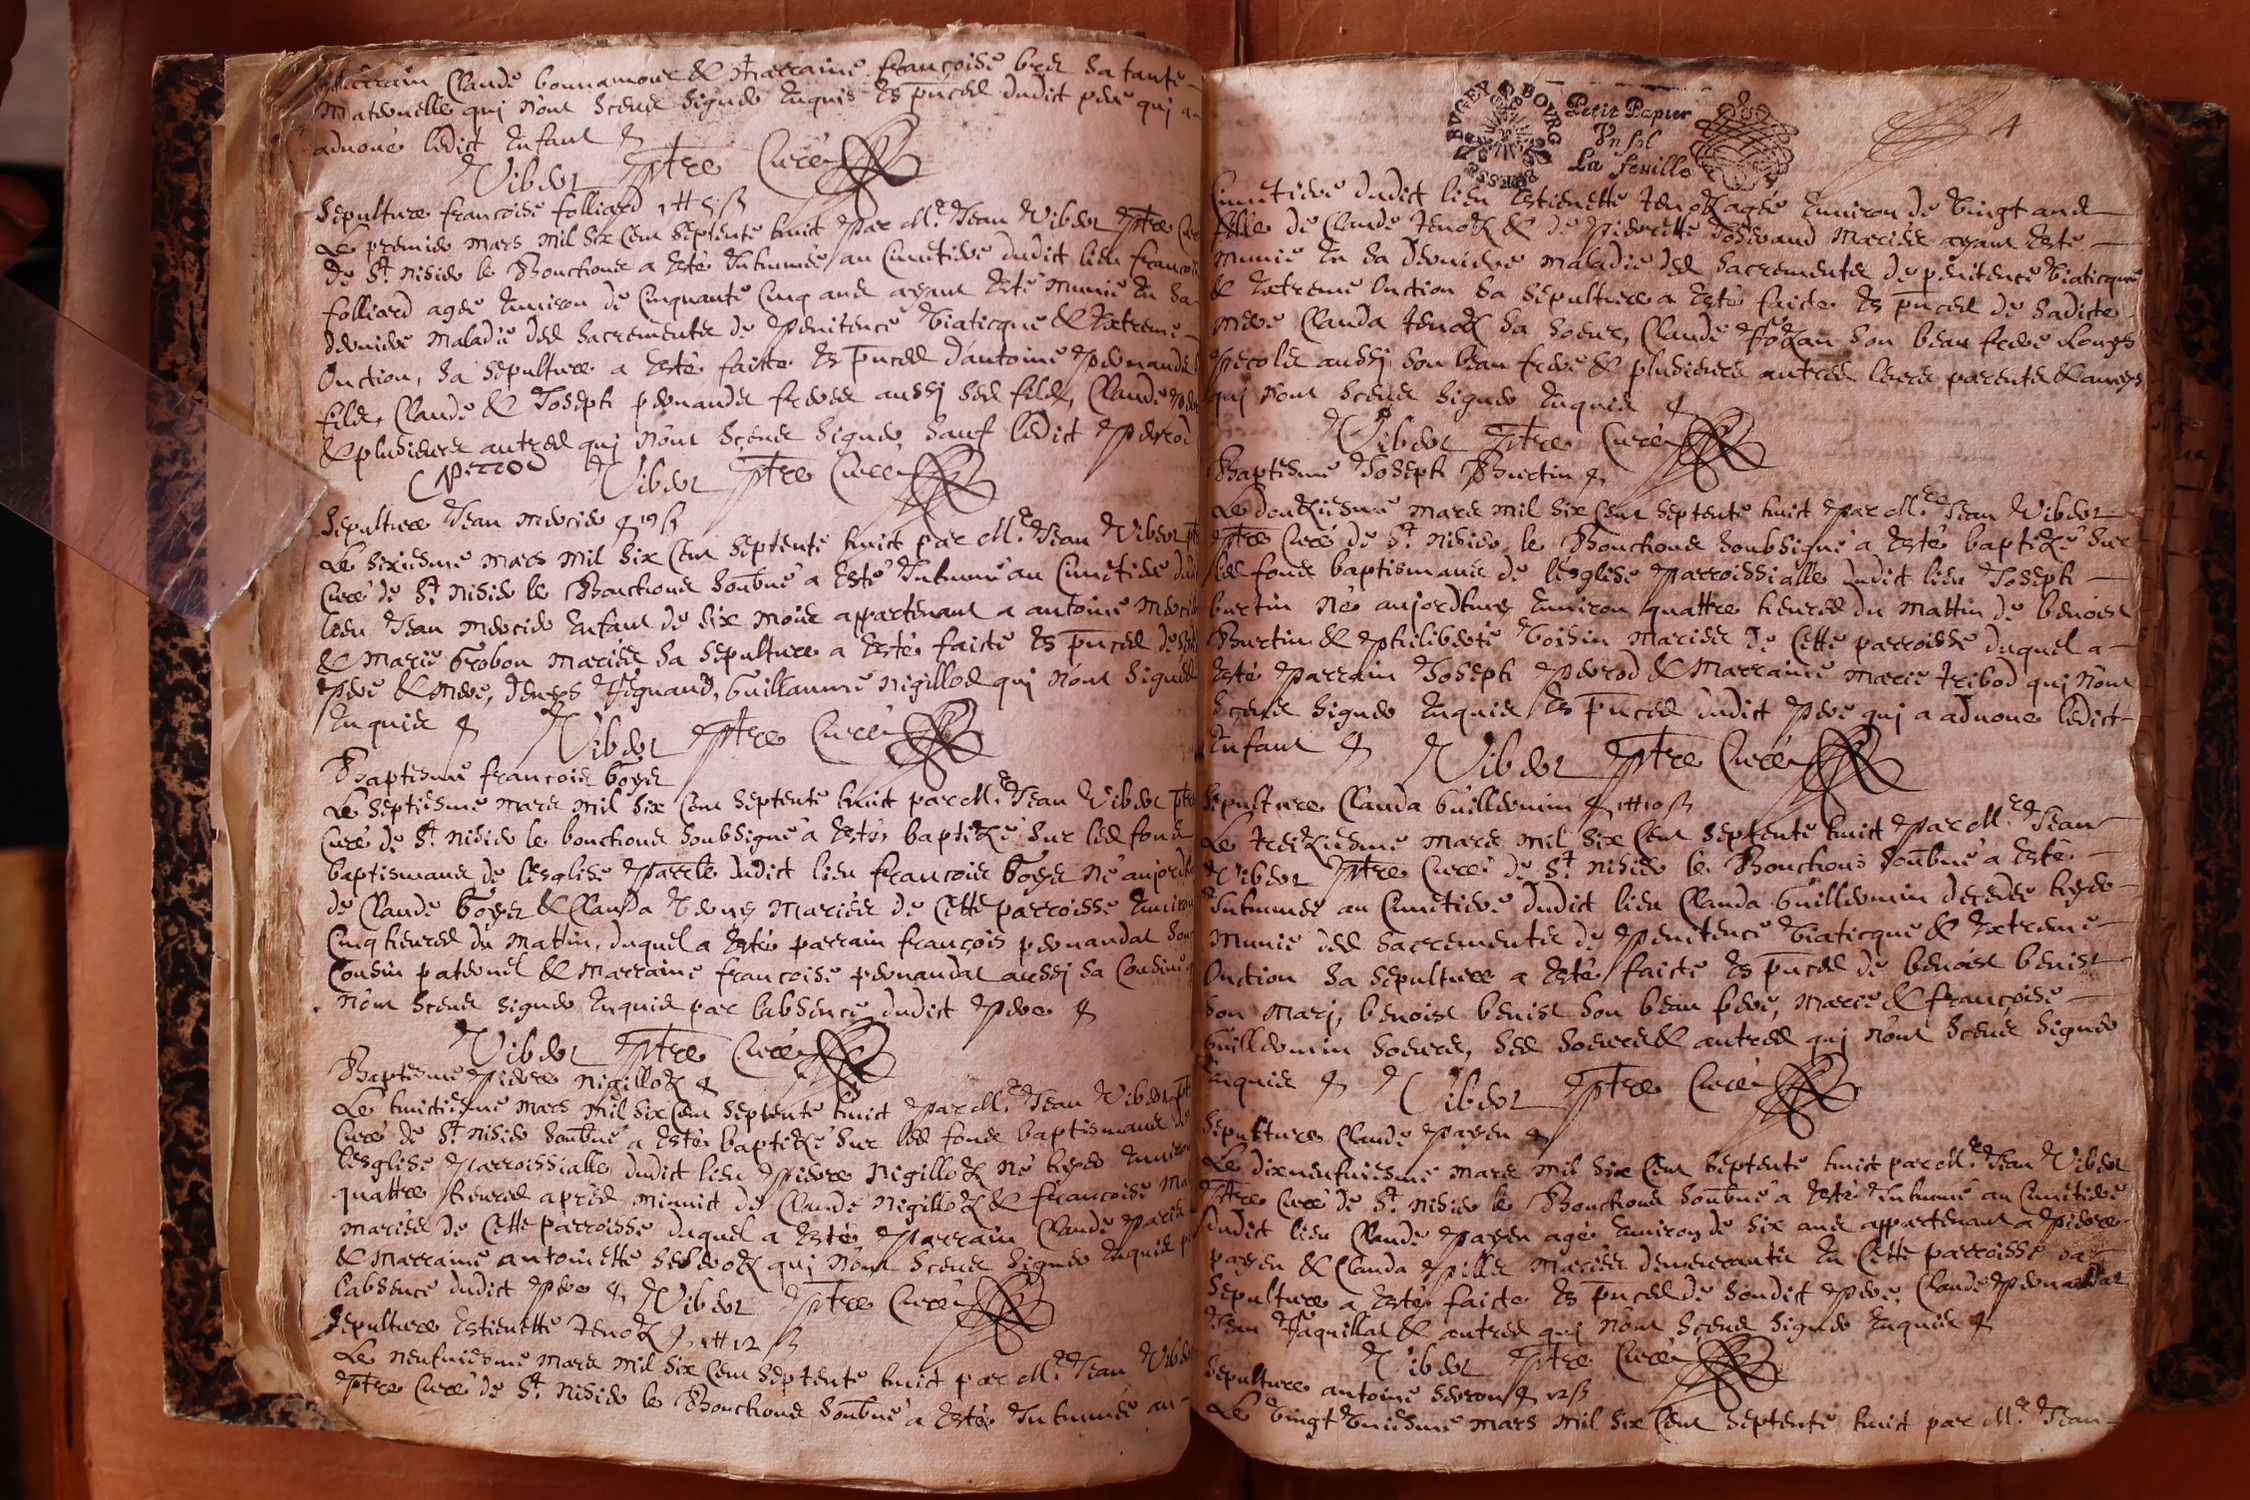 parrain Claude bonnamour & Marraine francoise bret sa tante
Maternelle qui n'ont sceus signer enquis Es p̄nces dudict pere qui a
advoué ledict Enfant &
Vibert Ptre Curé
Sepulture francoise folliard 1 tt 5 ß
Le premier mars mil six cent septente huict Par Mre Jean Vibert Ptre Cu
de St nisier le Bouchoux a esté Inhumée au Cimetiere dudict lieu francoi
folliard agée Environ de Cinquante Cinq ans ayant esté munie En sa
derniere maladie des sacrements de Penitence Viaticque & Extreme
Onction, sa sepulture a esté faitte Es p̄nces d'antoine Pernandet
fils, Claude & Joseph pernandet freres aussy ses fils, Claude
& plusieurs autres qui n'ont sceus signer sauf ledict Perrod
Perrod Vibert Ptre Curé
Sepulture Jean mercier & 19 ß
Le sixiesme mars mil six cent septente huict par Mre Jean Vibert pt
Curé de St nisier le Bouchoux soub̄né a esté Inhumé au Cimetiere du
lieu Jean mercier Enfant de six mois appartenant a antoine merci
& marie Grobon mariés sa sepulture a esté faicte Es p̄nces de
Pere & mere, Denys Pignand, Guillaume nigillod qui n'ont signés
Enquis & Vibert Ptre Curé
Baptisme francois Goyet
Le septiesme mars mil six cent septente huict par Mre Jean Vibert ptre
Curé de St nisier le bouchoux soubsigné a esté baptizé sur les fons
baptismaux de l'esglise Par̄lle dudict lieu francois Goyet né aujord
de Claude Goyet & Clauda mariés de Cette parroisse Environ
Cinq heures du mattin, duquel a esté parrain francois pernandat son
Cousin paternel & marraine francoise pernandat aussy sa Cousine
n'ont sceus signer Enquis par labsence dudict Pere &
Vibert Ptre Curé
Baptisme Pierre nigilloz &
Le huictiesme mars mil six cent septente huict Par Mre Jean Vibert pt
Curé de St nisier soub̄né a esté baptizé sur les fons baptismaux de
l'esglise Parroissialle dudict lieu Pierre nigilloz né hyer Environ
quattre heures aprés minuict de Claude nigilloz & francoise
mariés de Cette parroisse duquel a esté Parrain Claude
& marraine antoinette qui n'ont sceus signer Enquis p
l'absence dudict Pere & Vibert Ptre Curé
Sepulture Estienette Jenoz & 1 tt 12 ß
Le neufviesme mars mil six cent septente huict par Mre Jean Vibe
Ptre Curé de St nisier le Bouchoux soub̄né a esté Inhumée au
BVGEY BOVRG BRESSE
Petit Papier
Vn sol
La feuille
4
Cimetiere dudict lieu Estienette Jenoz agée Environ de Vingt ans
fille de Claude Jenoz & de Pierrette Josserand mariés ayant esté
munie En sa derniere maladie des sacrements de penitence Viaticque
& Extreme Onction sa sepulture a esté faicte Es p̄nces de sadicte
mere Clauda Jenoz sa soeur, Claude son beau frere Louys
Pecolet aussy son beau frere & plusieurs autres leurs parents & amys
qui n'ont sceus signer Enquis &
Vibert Ptre Curé
Baptisme Joseph Burtin &
Le douziesme mars mil six cent septente huict Par Mre Jean Vibert
Ptre Curé de St nisier le Bouchoux soubsigné a esté baptizé sur
les fons baptismaux de l'esglise Parroissialle dudict lieu Joseph
burtin né aujordhuy Environ quattre heures du mattin de benoist
Burtin & Philiberte Voisin mariés de Cette parroisse duquel a
esté Parrain Joseph Perrod & Marraine marie tribod qui n'ont
sceus signer Enquis Es p̄nces dudict Pere qui a advoué ledict
Enfant & Vibert Ptre Curé
Sepulture Clauda Guillermin & 1 tt 10 ß
Le treiziesme mars mil six cent septente huict Par Mre Jean
Vibert Ptre Curé de St nisier le Bouchoux soub̄né a esté
Inhumée au Cimetiere dudict lieu Clauda Guillermin decedée hyer
munie des sacrements de Penitence Viaticque & Extreme
Onction sa sepulture a esté faicte Es p̄nces de benoist benist
son mary, benoist benist son beau pere, marie & francoise
Guillermin soeurs, ses soeurs & autres qui n'ont sceus signer
Enquis & Vibert Ptre Curé
Sepulture Claude Payen &
Le dixneufviesme mars mil six cent septente huict par Mre Jean Vibert
Ptre Curé de St nisier le Bouchoux soub̄né a esté Inhumé au Cimetiere
dudict lieu Claude Payen agé Environ de six ans appartenant a Pierre
payen & Clauda Pillet mariés demeurants En Cette parroisse sa
sepulture a esté faicte Es p̄nces de sondict Pere, Claude Pernandat
Jean Paquillat & autres qui n'ont sceus signer Enquis &
Vibert Ptre Curé
Sepulture antoine & 12 ß
Le Vingt Vniesme mars mil six cent septente huict par Mre Jean